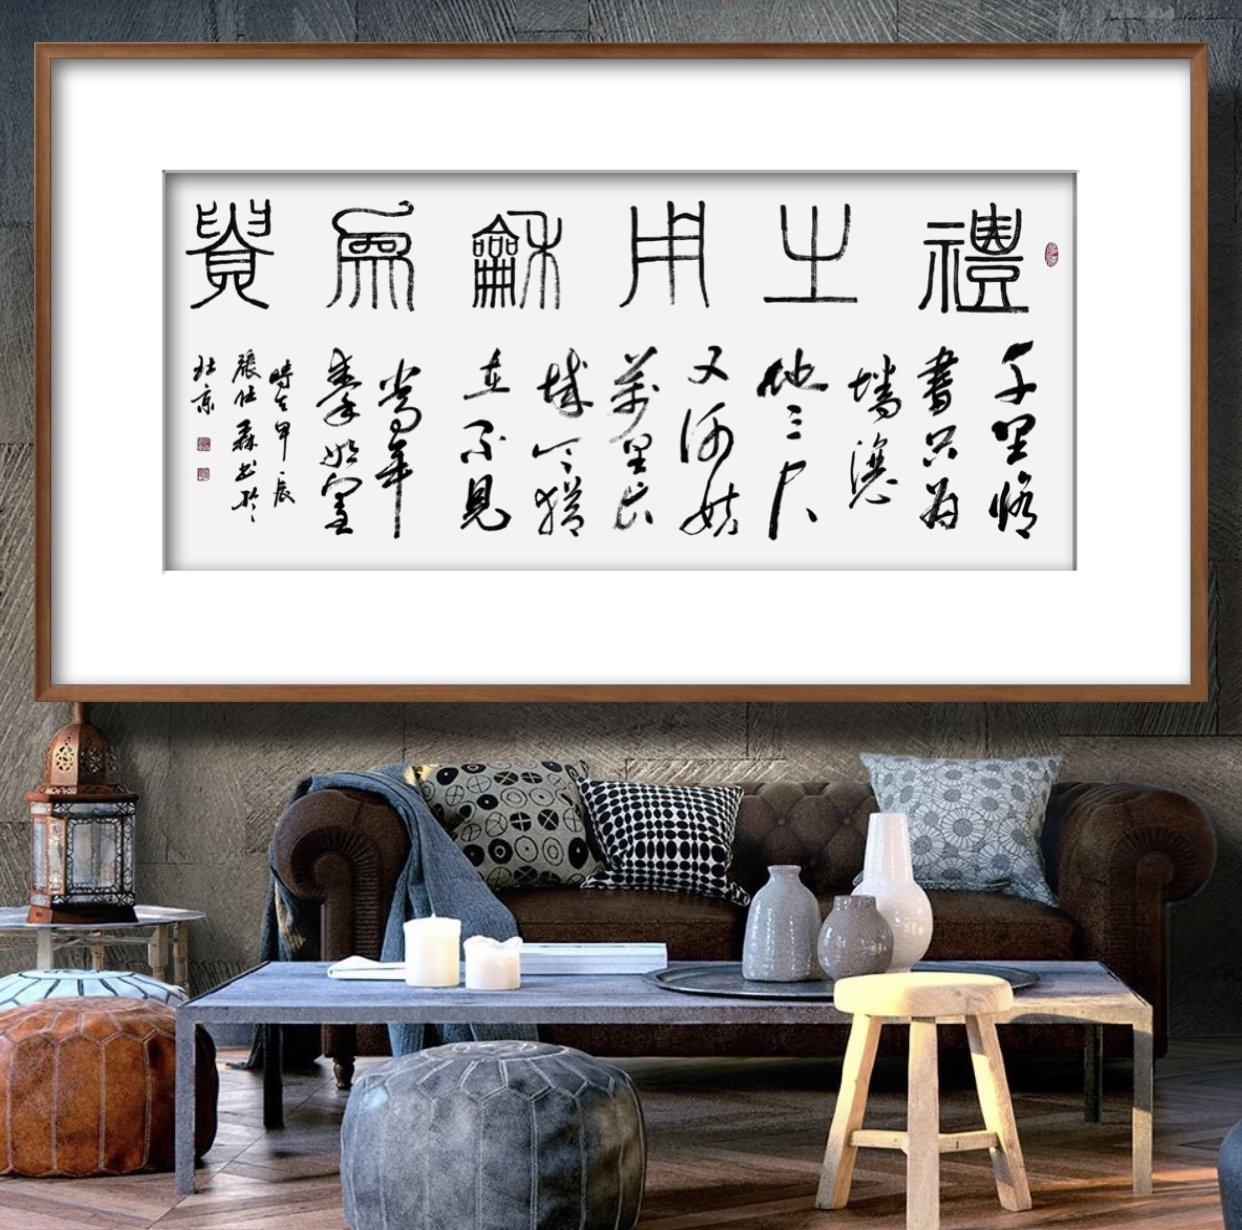 禮之用龢為貴
千里修
書只為
墻讓
他三尺
又何妨
萬里长
城今猶
在不見
當年
秦始皇
時在甲辰
張仕森书於
北京